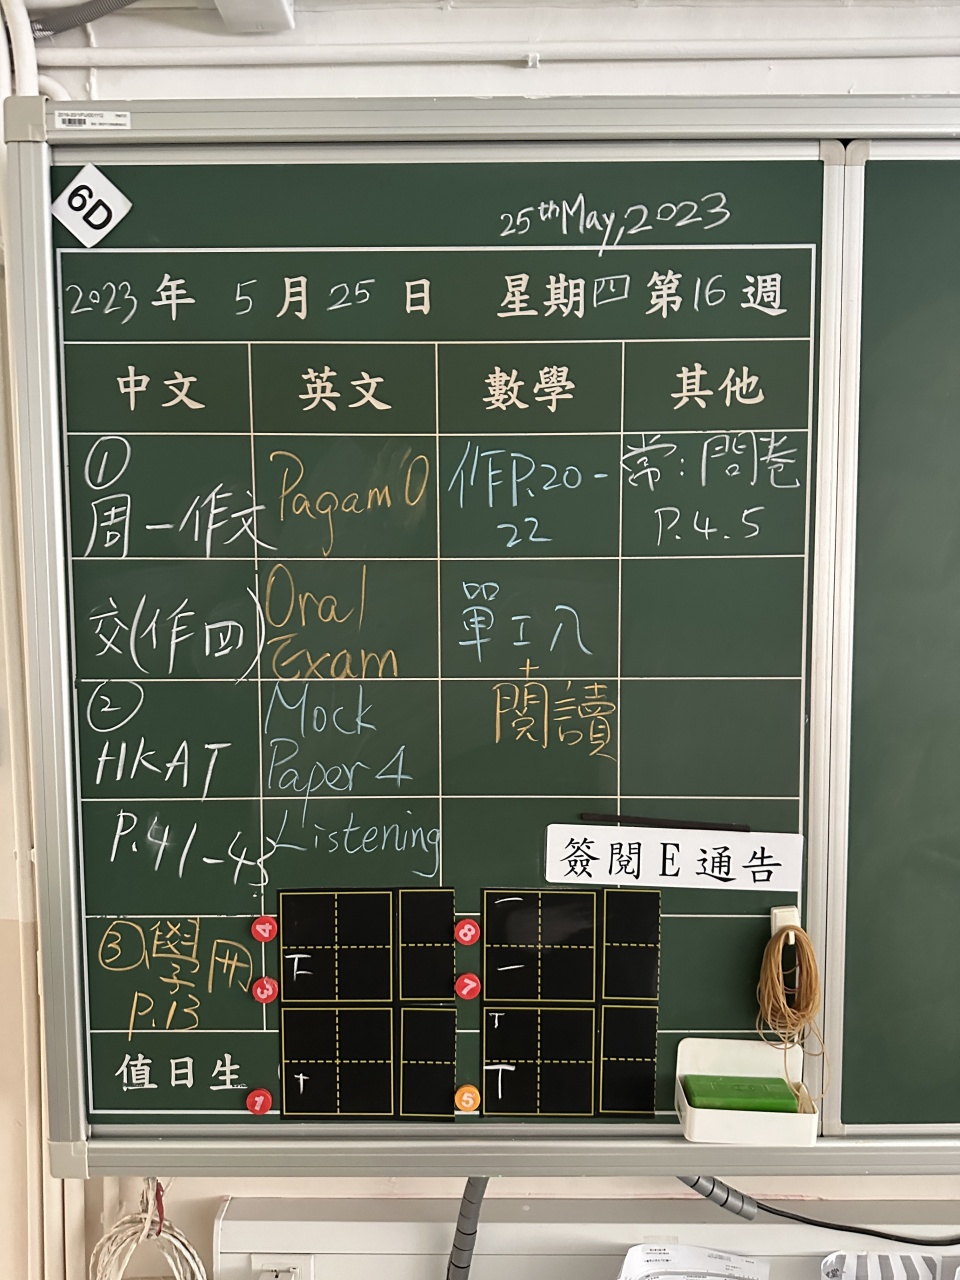 6D
25th May, 2023
2023 年 5 月 25 日 星期四 第 16 週
中文 英文 數學 其他
①
周一作文
交(作四)
②
HKAT
P.41-45
③學冊
P.13
PagamO
Oral
Exam
Mock
Paper 4
Listening
作P.20-
22
單工八
+
閱讀
常:問卷
P.4.5
簽閱E通告
4
8
3
7
1
5
值日生